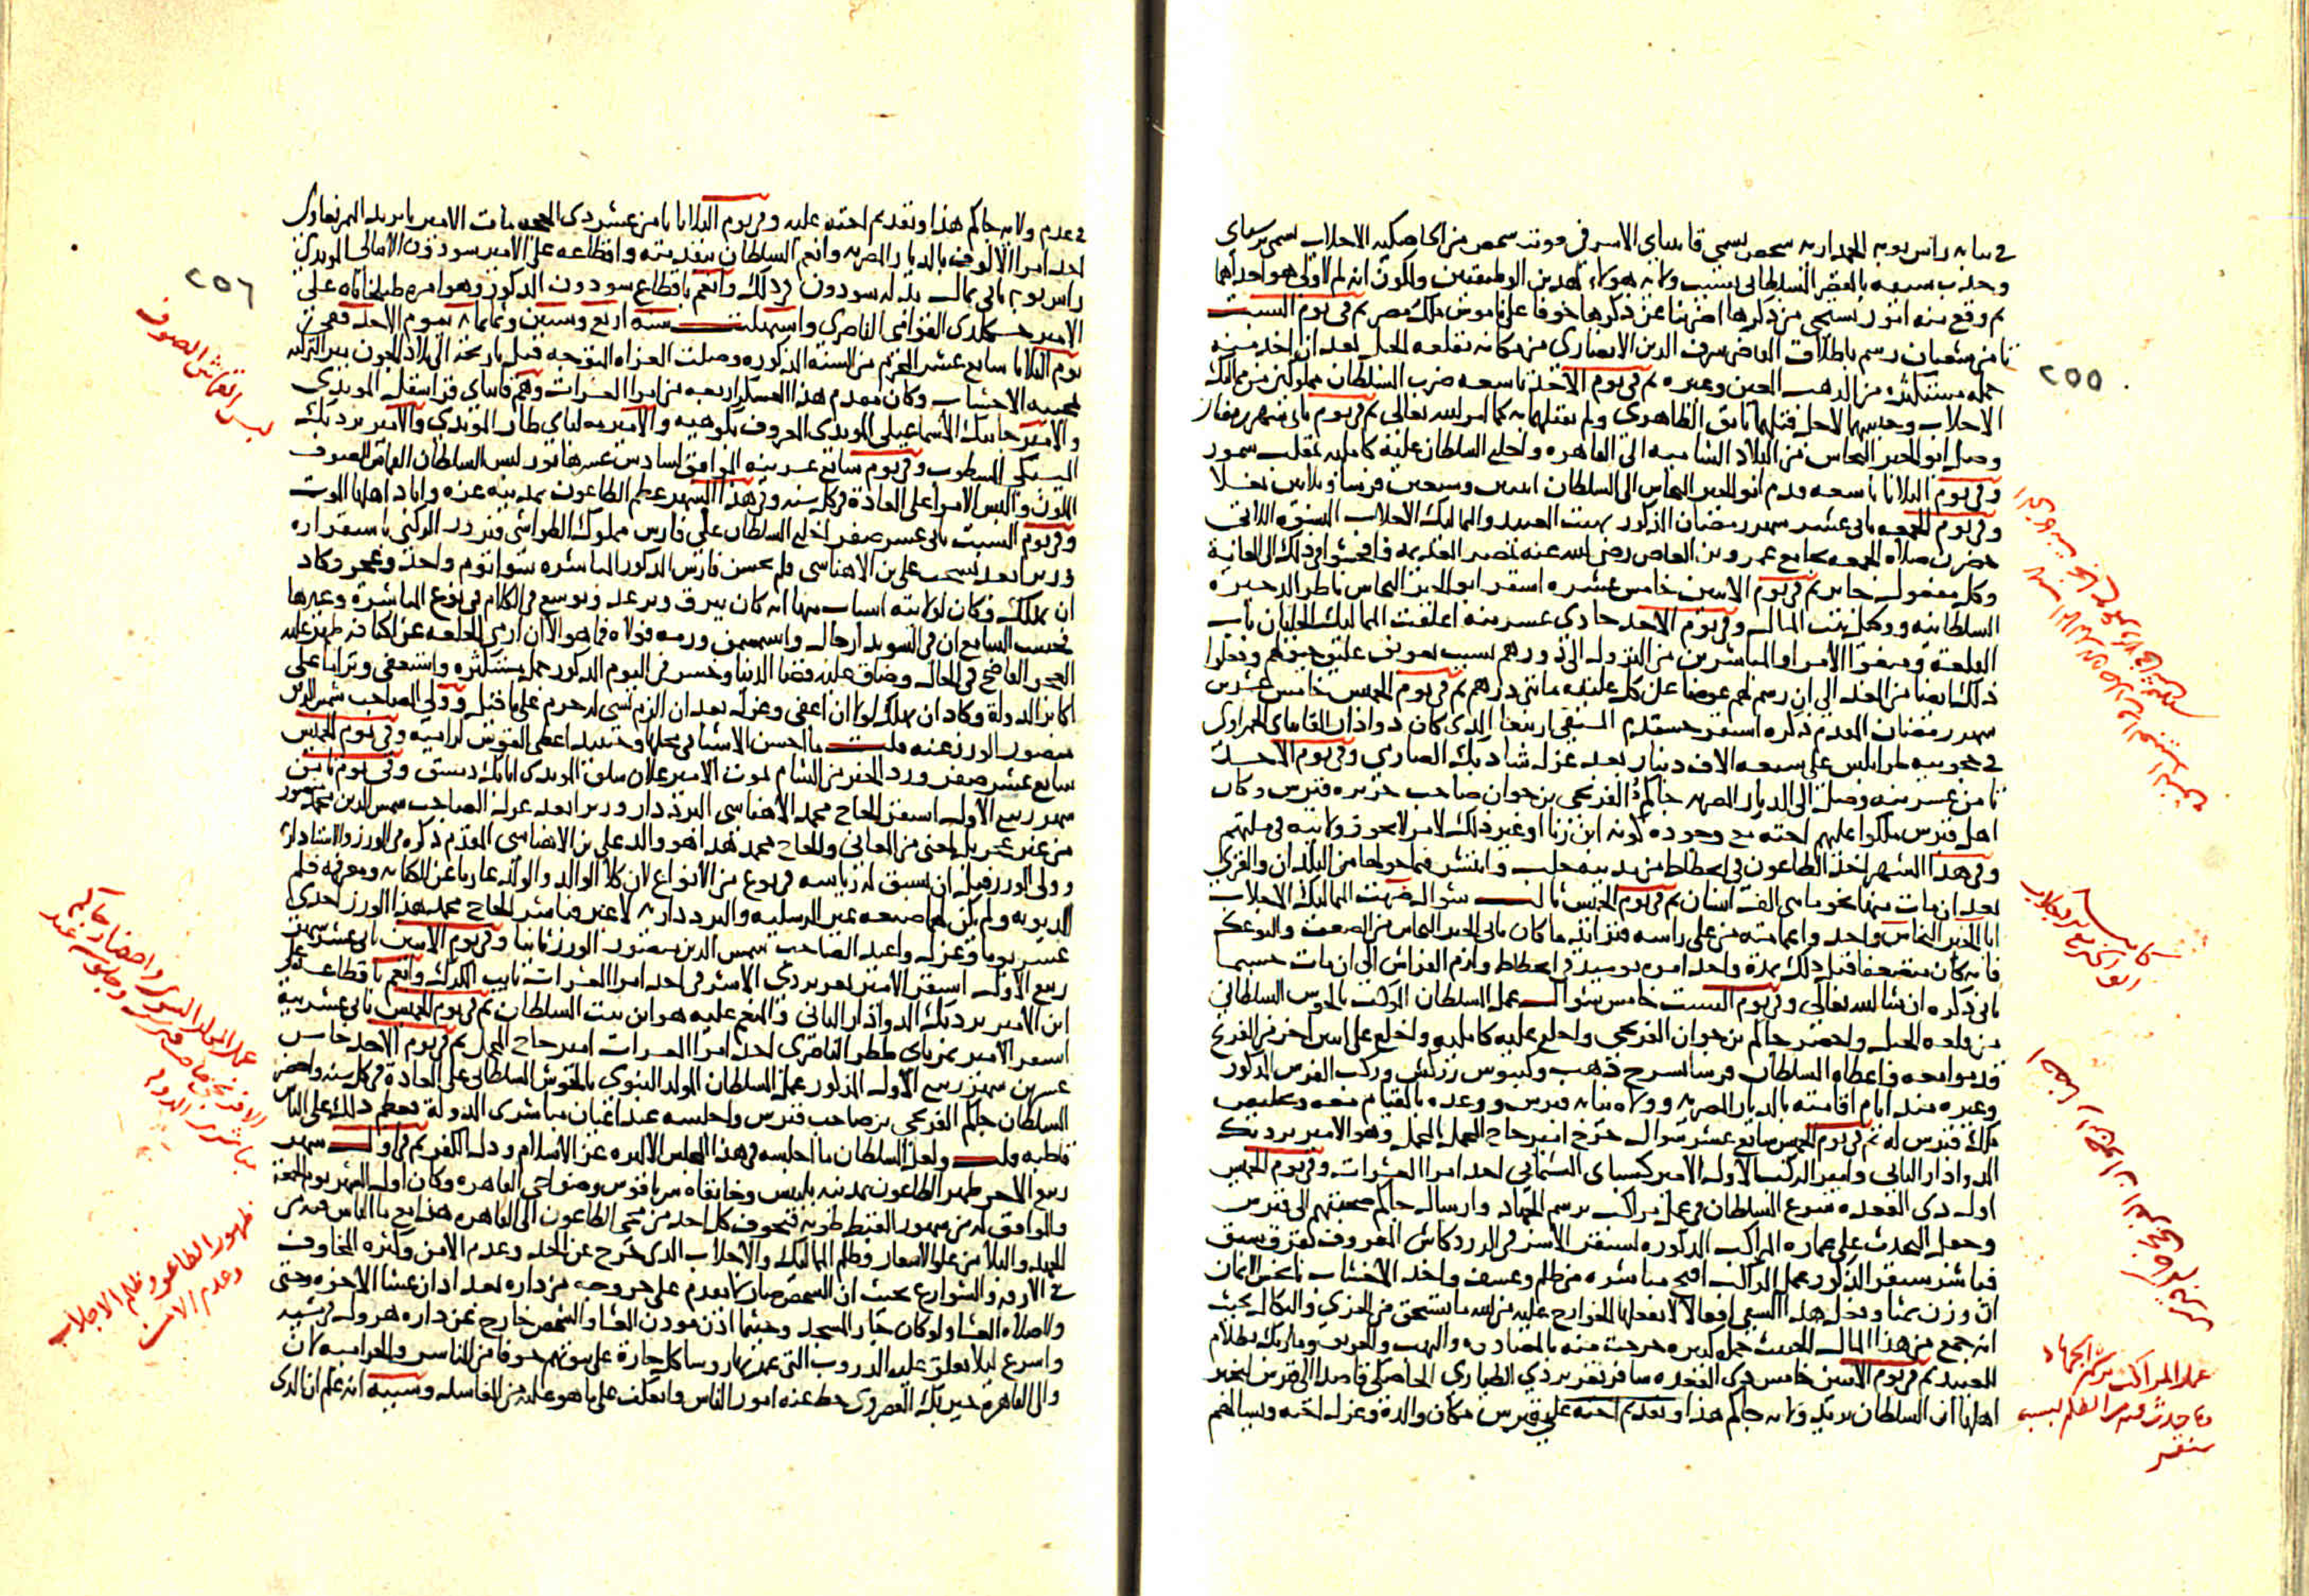 في نيابة راس نوبة الجمدارية شخص يسمى قايتباي الاشرفي موت شخص من الخاصكية الاجلاب اسمى برسباي
وجذب سيفه بالقصر السلطاني بسبب ولاية هولاء لهذين الوظيفتين ولكون انه لم لا ولي هو احداهما
ثم وقع منه امور يستحى من ذكرها اضربنا عن ذكرها خوفا على ناموس ملك مصر ثم في يوم السبت
ثامن شعبان رسم باطلاق القاضي شرف الدين الانصاري من مكانه بقلعة الجبل بعد ان اخذ منه
جملة مستكثرة من الذهب العين وغيره ثم في يوم الاحد تاسعه ضرب السلطان مملوكين من مماليك
الاجلاب وحبسهما لاجل قتلهما نانق الظاهري ولم يقتلهما به كما امر الله تعالى ثم في يوم ثاني شهر رمضان
وصل ابو الخير النحاس من البلاد الشامية الى القاهرة واخلع السلطان عليه كاملية بمقلب سمور
وفي يوم الثلاثا تاسعه قدم ابو الخير النحاس الى السلطان اثنين وسبعين فرسا وثلاثين بغلا
وفي يوم الجمعة ثاني عشر شهر رمضان المذكور نهبت العبيد والمماليك الاجلاب النسوة اللاتي
حضرن صلاة الجمعة بجامع عمرو بن العاص رضي الله عنه بمصر القديمة فافحشوا في ذلك الى الغاية
وكل مفعول جايز ثم في يوم الاثنين خامس عشره استقر ابو الخير النحاس ناظر الذخيرة
السلطانية ووكيل بيت المال وفي يوم الاحد حادي عشرينه اغلقت المماليك الجلبان باب
القلعة ومنعوا الامرا والمباشرين من النزول الى دورهم بسبب تعويق عليق خيولهم وفعلوا
ذلك ايضا من الغد الى ان رسم لهم عوضا عن كل عليقة مائتي درهم ثم في يوم الخميس خامس عشرين
شهر رمضان المقدم ذكره استقر خشقدم السيفي ارنبغا الذي كان دوادار قانباي الحمزاوي
في حجوبية طرابلس على سبعة الاف دينار بعد عزل شاد بك الصارمي وفي يوم الاحد
ثامن عشرينه وصل الى الديار المصرية جاكم الفرنجي بن جوان صاحب جزيرة قبرس وكان
اهل قبرس ملكوا عليهم اخته مع وجوده لكونه ابن زنا او غير ذلك لامر لا يجوز ولايته في ملتهم
وفي هذا الشهر اخذ الطاعون في انحطاط من مدينة حلب وانتشر فيما حولها من البلدان والقرى
بعد ان مات منها نحو مايتي الف انسان ثم في يوم الخميس ثالث شوال ضربت المماليك الاجلاب
ابا الخير النحاس واخذوا عمامته من على راسه فتزايد ما كان بابي الخير النحاس من الضعف والتوعك
فانه كان متضعفا قبل ذلك بمدة واخذ امره يوميذ في انحطاط ولزم الفراش الى ان مات حسبما
ياتي ذكره ان شا الله تعالى وفي يوم السبت خامس شوال عمل السلطان الموكب بالحوش السلطاني
من قلعة الجبل واحضر جاكم بن جوان الفرنجي واخلع عليه كاملية واخلع على اثنين اخر من الفرنج
قدموا معه واعطاه السلطان فرسا بسرج ذهب وكنبوش زركش وركب الفرس المذكور
وغيره مدة ايام اقامته بالديار المصرية وولاه نيابة قبرس ووعده بالقيام معه وتخليص
ملك قبرس له ثم في يوم الخميس سابع عشر شوال خرج امير حاج المحمل بالمحمل وهو الامير بردبك
الدوادار الثاني وامير الركب الاول الامير كسباي الششماني احد امرا العشرات وفي يوم الخميس
اول ذي القعدة شرع السلطان في عمل مراكب برسم الجهاد وارسال جاكم صحبتهم الى قبرس
وجعل المتحدث على عمارة المراكب المذكورة سنقر الاشرفي الزردكاش المعروف بقرق شبق
فباشر سنقر المذكور عمل المراكب اقبح مباشرة من ظلم وعسف واخذ الاخشاب بابخس الاثمان
ان وزن ثمنا وفعل هذا الشقي افعالا لا يفعلها الخوارج عليه من الله ما يستحق من الخزي والنكال بحيث
انه جمع من هذا المال الخبيث جملة كبيرة خرجت منه بالمصادرة والنهب والحريق وما ربك بظلام
للعبيد ثم في يوم الاثنين خامس ذي القعدة سافر تغري بردي الطياري الخاصكي قاصدا الى قبرس ليخبر
اهلها ان السلطان يريد ولاية جاكم هذا وتقديم اخته على قبرس مكان والده وعزل اخته وليسالهم
٢٥٥
عمل المراكب برسم الجهاد
وما حدث من الظلم بسبب
سنقر
في عدم ولاية جاكم هذا وتقديم اخته عليه وفي يوم الثلاثا ثامن عشر ذي الحجة مات الامير يايزيد التمربغاوي
احد امرا الالوف بالديار المصرية وانعم السلطان بتقدمته واقطاعه على الامير سودون الاينالي المويدي
راس نوبة ثاني بمال بذله سودون في ذلك وانعم باقطاع سودون المذكور وهو امرة طبلخاناه على
الامير جكمدي القوامي الناصري واستهلت سنة اربع وستين وثمانماية بيوم الاحد ففي
يوم الثلاثا سابع عشر المحرم من السنة المذكورة وصلت الغزاة المتوجهة قبل تاريخه الى بلاد الجون ببر التركية
لجيبة الاخشاب وكان مقدم هذا العسكر اربعة من امرا العشرات وهم قانباي قرا سقل المويدي
والامير جانبك الاسماعيلي المويدي المعروف بكوهية والامير معلباي طاز المويدي والامير بردبك
البجمقي المشطوب وفي يوم سابع عشرينه الموافق لسادس عشر هاتور لبس السلطان القماش الصوف
الملون والبس الامرا على العادة في كل سنة وفي هذا الشهر عظم الطاعون بمدينة غزة واباد اهلها الموت
وفي يوم السبت ثاني عشر صفر اخلع السلطان على فارس مملوك الطواشي فيروز الركني باستقراره
وزيرا بعد تسحب علي بن الاهناسي فلم يحسن فارس المذكور المباشرة سوى يوم واحد وعجز وكاد
ان يهلك وكان لولايته اسباب منها انه كان يبرق ويرعد ويوسع في الكلام في نوع المباشرة وغيرها
فحسب السامع ان في السويدا رجال واستسمن ورمه فولاه فما هو الا ان ارمى الخلعة عن اكتافه ظهر عليه
العجز الفاضح في الحال وضاق عليه فضا الدنيا وخسر في اليوم المذكور جملة مستكثرة واستعفى وترامى على
اكابر الدولة وكاد ان يهلك لولا ان اعفي وعزل بعد ان الزم بشي له جرم على ما قيل وولي الصاحب شمس الدين
منصور الوزر عنه قلت ما احسن الاشيا في محلها وحينئذ اعطي القوس لراميه وفي يوم الخميس
سابع عشر صفر ورد الخبر من الشام بموت الامير علان شلق المويدي اتابك دمشق وفي يوم ثامن
شهر ربيع الاول استقر الحاج محمد الاهناسي البرددار وزيرا بعد عزل الصاحب شمس الدين منصور
من غير عجز بل لمعنى من المعاني والحاج محمد هذا هو والد علي بن الاهناسي المقدم ذكره في الوزر والاستادارية
وولي الوزر قبل ان يسبق له رياسة في نوع من الانواع لان كلا الوالد والولد عاريا عن الكتابة ومعرفة قلم
الديونة ولم يكن لهما صنعة غير الرسلية والبردداريه لا غير فباشر الحاج محمد هذا الوزر احدى
عشر يوما وعزل واعيد الصاحب شمس الدين منصور للوزر ثانيا وفي يوم الاثنين ثاني عشر شهر
ربيع الاول استقر الامير تغري بردي الاشرفي احد امرا العشرات نايب الكرك وانعم باقطاعه على
ابن الامير بردبك الدوادار الثاني والمنعم عليه هو ابن بنت السلطان ثم في يوم الخميس ثاني عشرينه
استقر الامير تمرباي ططر الناصري احد امرا العشرات امير حاج المحمل ثم في يوم الاحد خامس
عشرين شهر ربيع الاول المذكور عمل السلطان المولد النبوي بالحوش السلطاني على العادة في كل سنة واحضر
السلطان جاكم الفرنجي بن صاحب قبرس واجلسه عند اعيان مباشري الدولة فعظم ذلك على الناس
قاطبة قلت ولعل السلطان ما اجلسه في هذا المجلس الا ليره عز الاسلام وذل الكفر ثم في اول شهر
ربيع الاخر ظهر الطاعون بمدينة بلبيس وخانقاه سرياقوس وضواحي القاهرة وكان اول الشهر يوم الجمعة
والموافق له من شهور القبط طوبة فتخوف كل احد من مجي الطاعون الى القاهرة هذا مع ما الناس فيه من
الجهد والبلا من غلو الاسعار وظلم المماليك الاجلاب الذي خرج عن الحد وعدم الامن وكثرة المخاوف
في الازقة والشوارع بحيث ان الشخص صار لا يقدم على خروجه من داره بعد اذان عشا الاخرة وحتى
ولا صلاة العشا ولو كان جار المسجد وحيثما اذن موذن العشا والشخص خارج عن داره هرول في مشيه
واسرع ليلا تغلق عليه الدروب التي عمرتها روسا كل حارة على بيوتهم خوفا من المناسر والحرامية لان
والي القاهرة خير بك القصروي حط عنه امور الناس وانعكف على ما هو عليه من المفاسد وسببه انه علم ان الذي
٢٥٦
لبس القماش الصوف
عمل المولد النبوي واحضار جاكم
الافرنجي صاحب قبرس وجلوسه عند
مباشرين الدولة
ظهور الطاعون وظلم الاجلاب
وعدم الامن